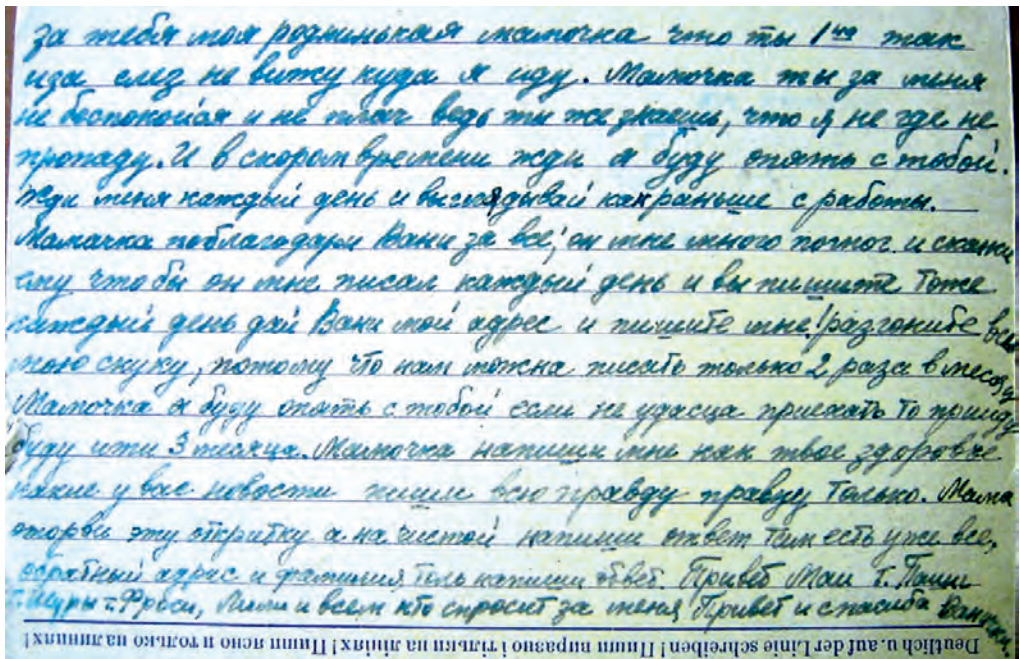 за тебя моя роднинькая мамочка что ты 1на так
иза слез не вижу куда я иду. Мамочка ты за меня
не беспокойся и не плач ведь ты же знаешь, что я не где не
пропаду. И в скором времени жди я буду опять с тобой.
Жди меня каждый день и выглядывай как раньше с работы.
Мамачка поблагодари Вани за все, он мне много помог и скажи
ему что бы он мне писал каждый день и вы пишите тоже
каждый день дай Вани мой адрес и пишите мне! разгоните всю
мою скуку, потому что нам можна писать только 2 раза в месяц
Мамочка я буду опять с тобой если не удасца приехать то приду
буду ити 3 месяца. Мамочка напиши мне как твое здоровье
какие у вас новости пиши всю правду правду только. Мама
оторви эту открытку а на чистой напиши ответ там есть уже все,
обратный адрес и фамилия, толь напиши ответ. Привет Маи т. Паши
т. Шуры т. Фроси, Лили и всем кто спросит за меня Привет и спасиба
Deutlich u. auf der Linie schreiben! Пиши виразно і тільки на лініях! Пиши ясно и только на линиях!